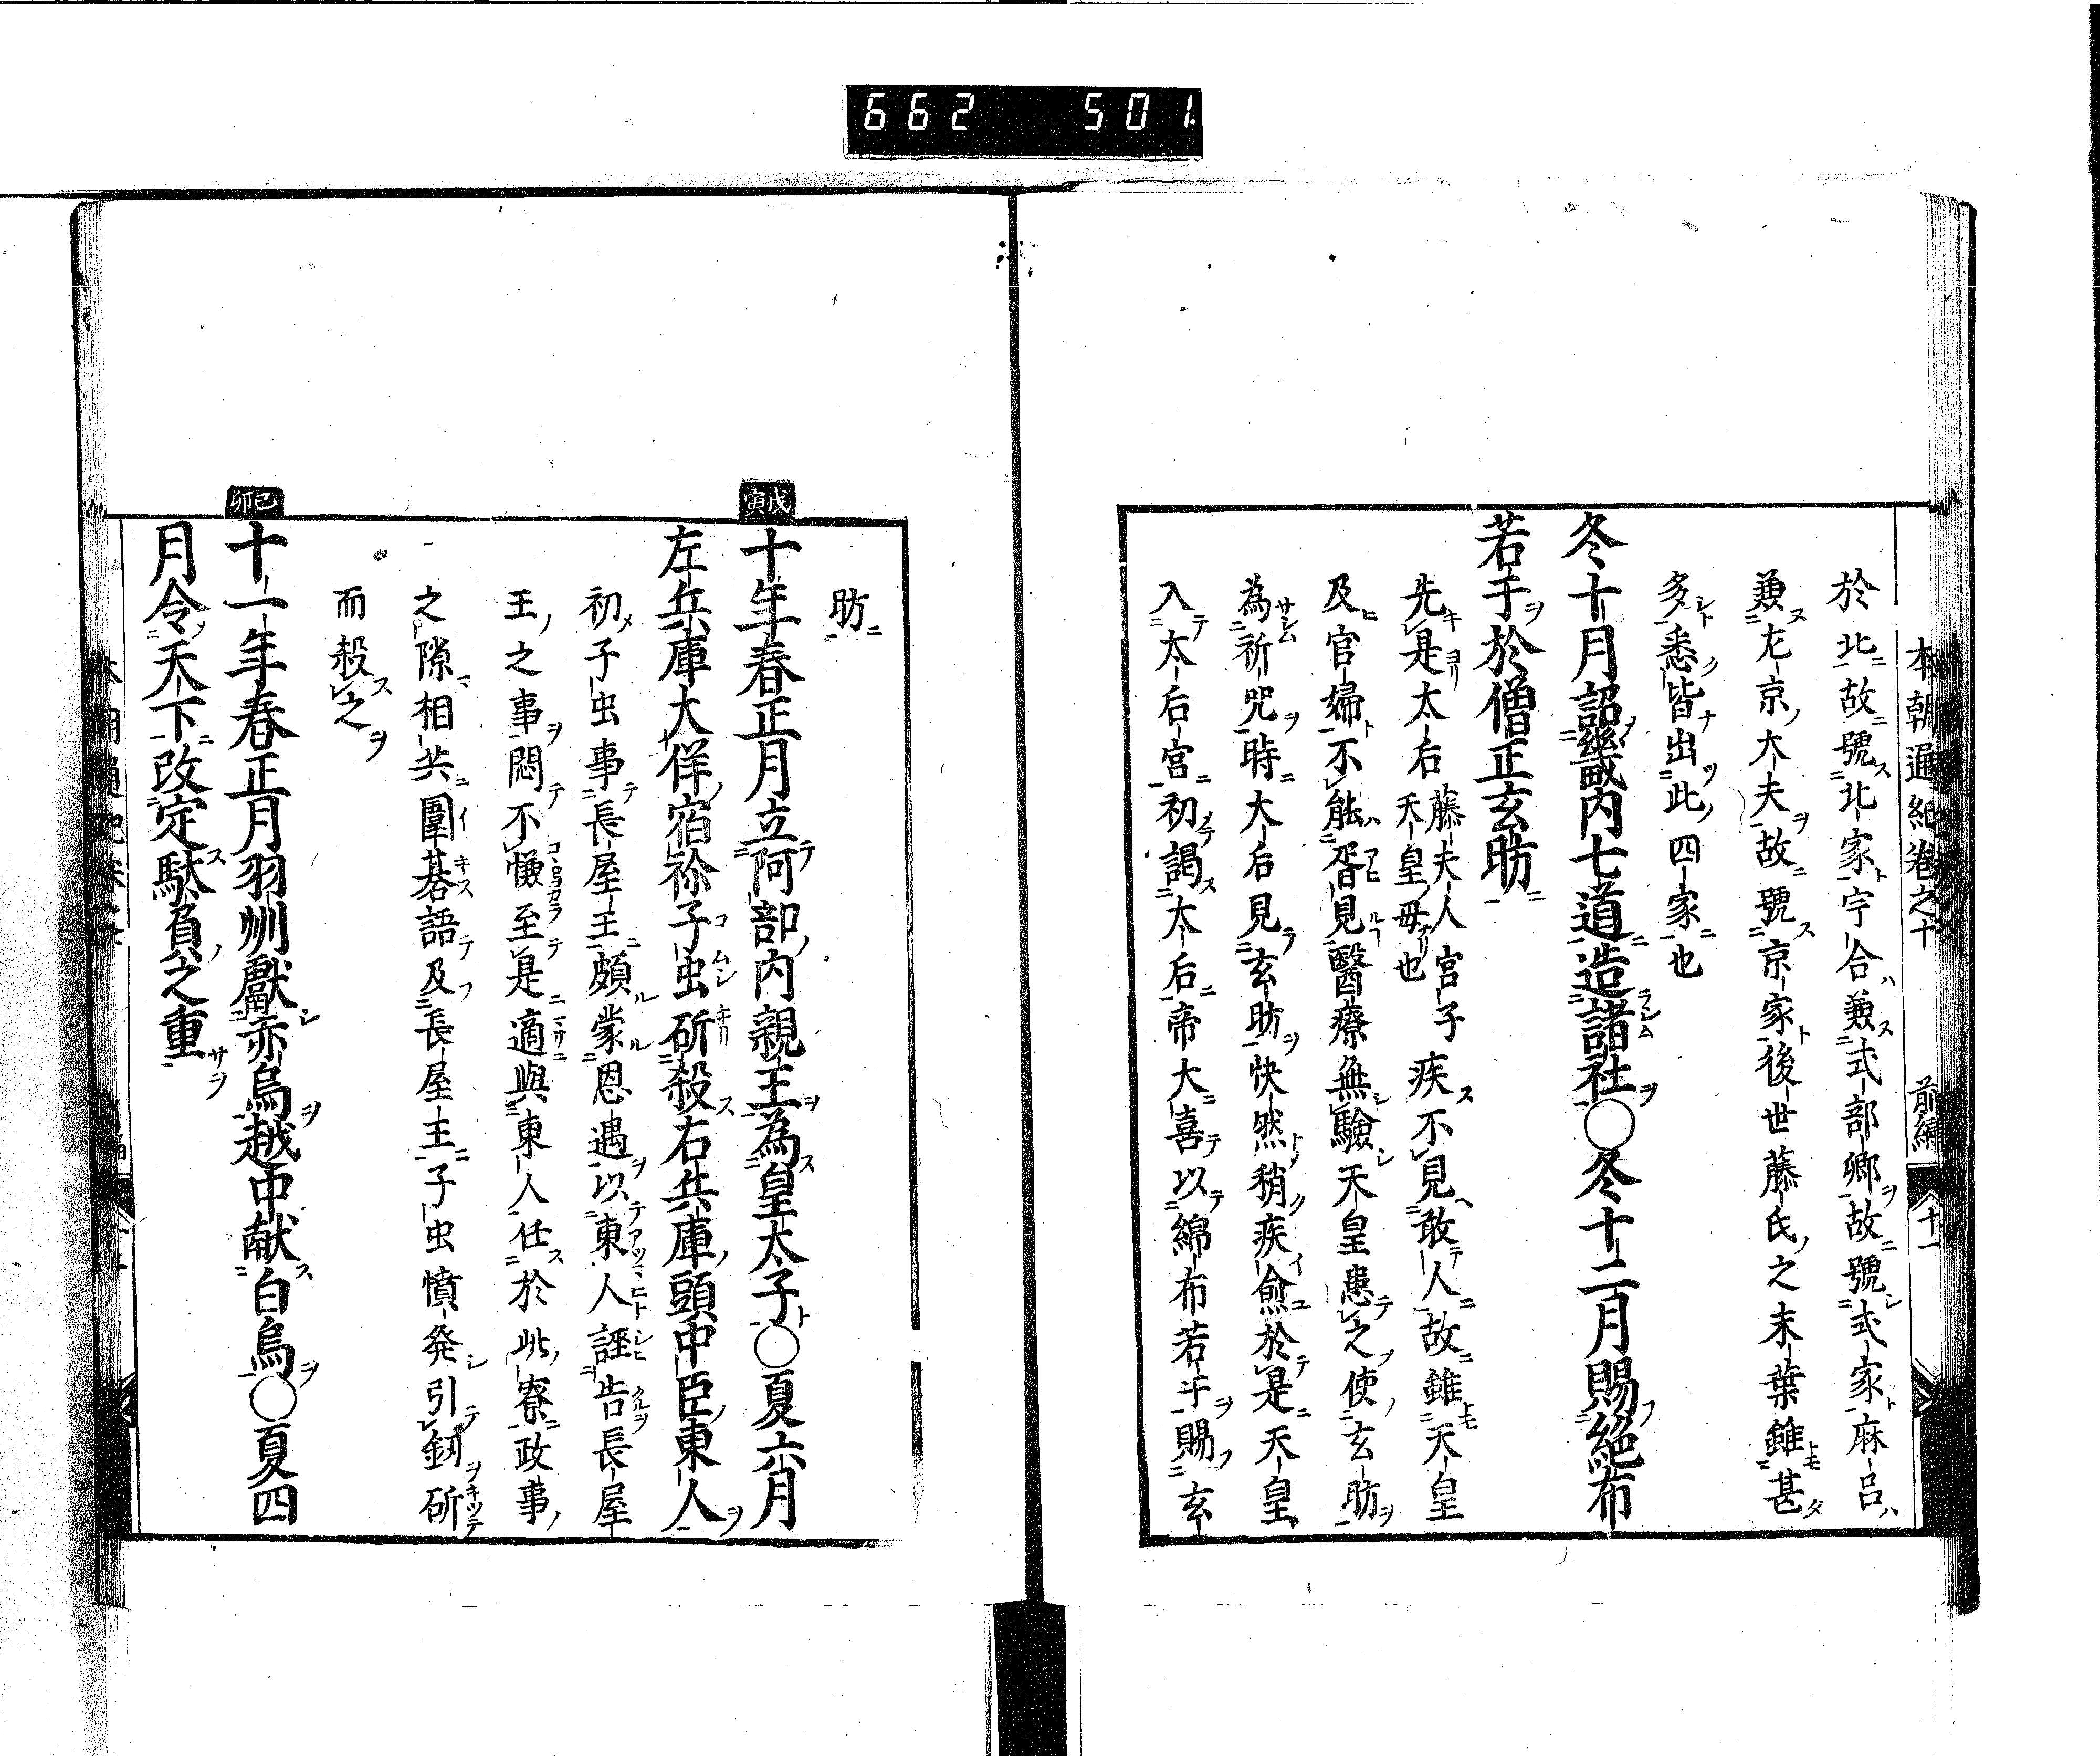 662 501.
本朝通紀卷之十 前編 十一
於北故號北家宇合兼式部卿故號式家麻呂
兼左京大夫故號京家後世藤氏之末葉雖甚
多悉皆出此四家也
冬十月詔畿内七道造諸社〇冬十二月賜絁布
若干於僧正玄昉
先是太后藤夫人宮子天皇母也疾不見敢人故雖天皇
及官婦不能胥見醫療無驗天皇患之使玄昉
為祈咒時大后見玄昉快然稍疾愈於是天皇
入太后宮初謁太后帝大喜以綿布若干賜玄
昉
戊寅
十年春正月立阿部内親王為皇太子〇夏六月
左兵庫大伴宿祢子虫斫殺右兵庫頭中臣東人
初子虫事長屋王頗蒙恩遇以東人誣告長屋
王之事悶不慊至是適與東人任於此寮政事
之隙相共圍碁語及長屋王子虫憤発引釼斫
而殺之
己卯
十一年春正月羽州獻赤烏越中献白烏〇夏四
月令天下改定馱負之重